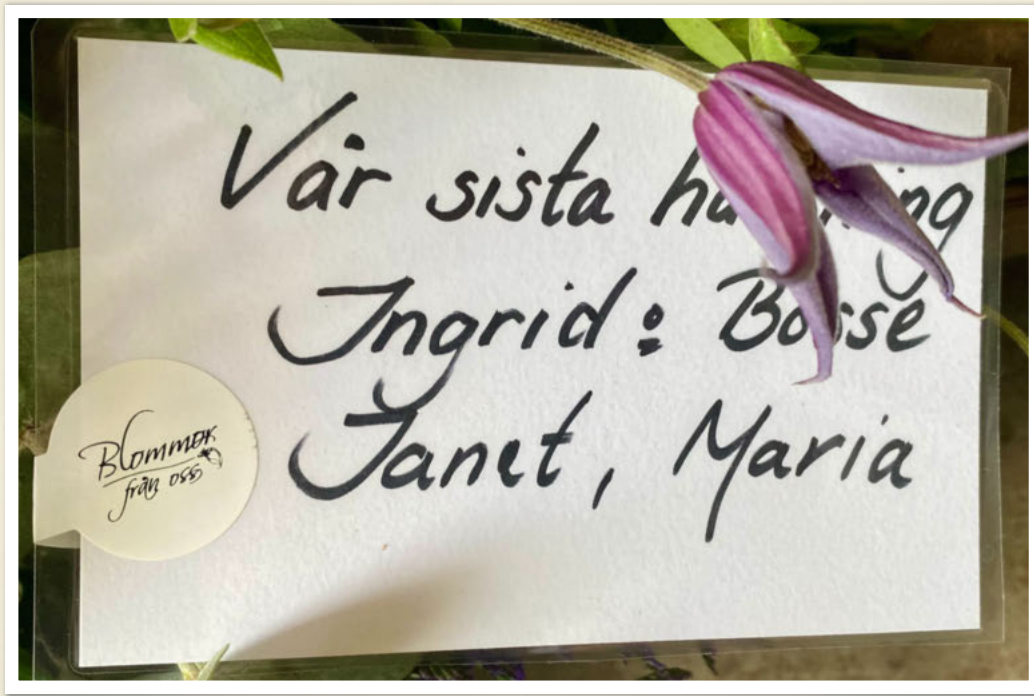 Vår sista
Ingrid o̲ Bosse
Janet, Maria
Blommor
från oss